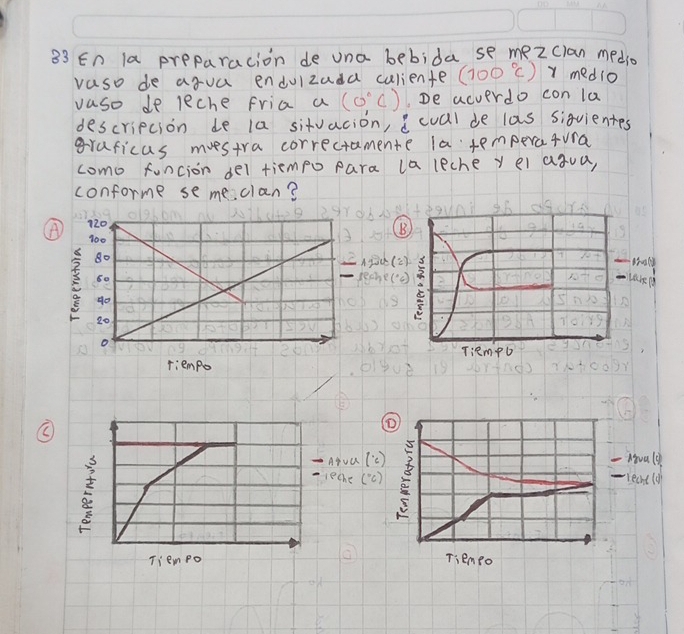 33 En la preparación de una bebida se mezclan medio
vaso de agua endulzada caliente (100°c) y medio
vaso de leche fria a (0°C). De acuerdo con la
descripción de la situación, ¿ cual de las siguientes
graficas muestra correctamente la temperatura
como función del tiempo para la leche y el agua,
conforme se me.clan?
A
120
100
80
60
40
20
0
Temperatura
Tiempo
Agua (
leche (°c)
B
Temperatura
Tiempo
Agua(
Leche(
C
Temperatura
Tiempo
Agua (°c)
leche (°c)
D
Temperatura
Tiempo
Agua (
leche (